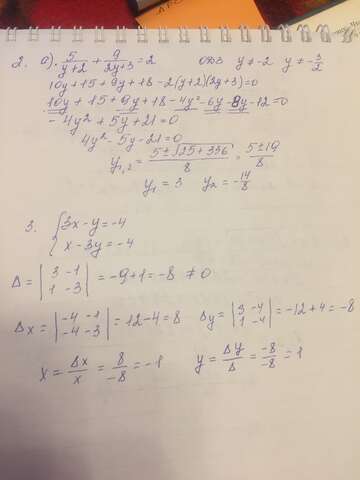 2. а). 5/(y+2) + 9/(2y+3) = 2 одз y ≠ -2 y ≠ -3/2
10y + 15 + 9y + 18 - 2(y+2)(2y+3) = 0
10y + 15 + 9y + 18 - 4y² - 6y - 8y - 12 = 0
- 4y² + 5y + 21 = 0
4y² - 5y - 21 = 0
y₁,₂ = (5 ± √(25+336))/8 = (5 ± 19)/8
y₁ = 3 y₂ = -14/8
3. { 3x - y = -4
x - 3y = -4
Δ = |3 -1; 1 -3| = -9 + 1 = -8 ≠ 0
Δx = |-4 -1; -4 -3| = 12 - 4 = 8 Δy = |3 -4; 1 -4| = -12 + 4 = -8
x = Δx/x = 8/-8 = -1 y = Δy/Δ = -8/-8 = 1